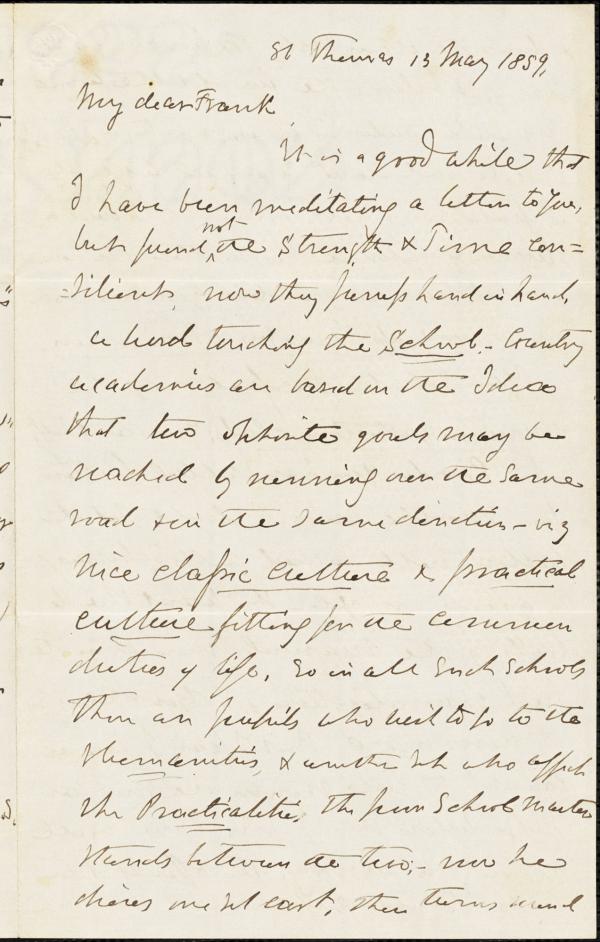 St Thomas 13 May 1859,
My dear Frank
It is a good while that
I have been meditating a letter to you,
but found not the Strength & Time con=
=silient, now they jump hand in hand,
a word touching the School. - Country
academies are based on the Idea
that two opposite goals may be
reached by running over the same
road & in the same direction - viz
nice classic culture & practical
culture fitting for the common
duties of life, So in all such schools
there are pupils who wish to go to the
Humanities, & another set who affect
the Practicalities, The poor School master
stands between the two; - now he
drives one set east, then turns round